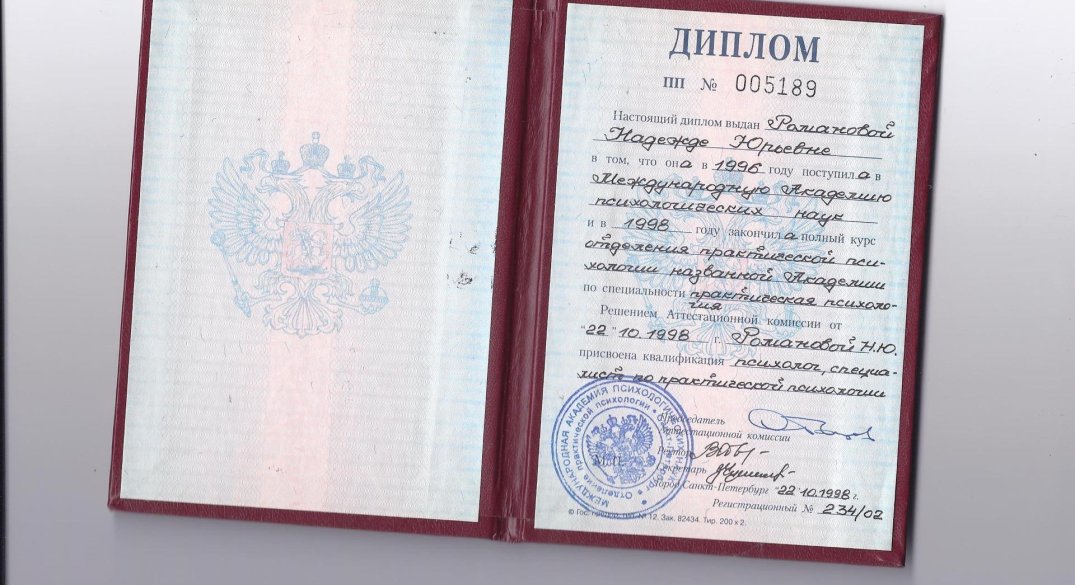 ДИПЛОМ
ПП № 005189
Настоящий диплом выдан Романовой
Надежде Юрьевне
в том, что она в 1996 году поступила в
Международную Академию
психологических наук
и в 1998 году закончила полный курс
отделения практической пси-
хологии названной Академии
по специальности практическая психоло-
гия
Решением Аттестационной комиссии от
"22" 10.1998 г. Романовой Н.Ю.
присвоена квалификация психолог, специа-
лист по практической психологии
Председатель
Аттестационной комиссии
Ректор
Секретарь
М.П.
Город Санкт-Петербург "22" 10.1998 г.
Регистрационный № 234/02
МЕЖДУНАРОДНАЯ АКАДЕМИЯ ПСИХОЛОГИЧЕСКИХ НАУК
Отделение практической психологии
№ 12. Зак. 82434. Тир. 200 х 2.